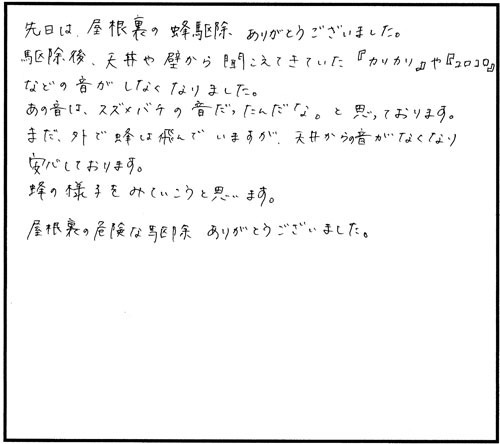 先日は、屋根裏の蜂駆除、ありがとうございました。
駆除後、天井や壁から聞こえてきていた『カリカリ』や『コロコロ』
などの音がしなくなりました。
あの音は、スズメバチの音だったんだな。と思っております。
まだ、外で蜂は飛んでいますが、天井からの音がなくなり
安心しております。
蜂の様子をみていこうと思います。
屋根裏の危険な駆除、ありがとうございました。